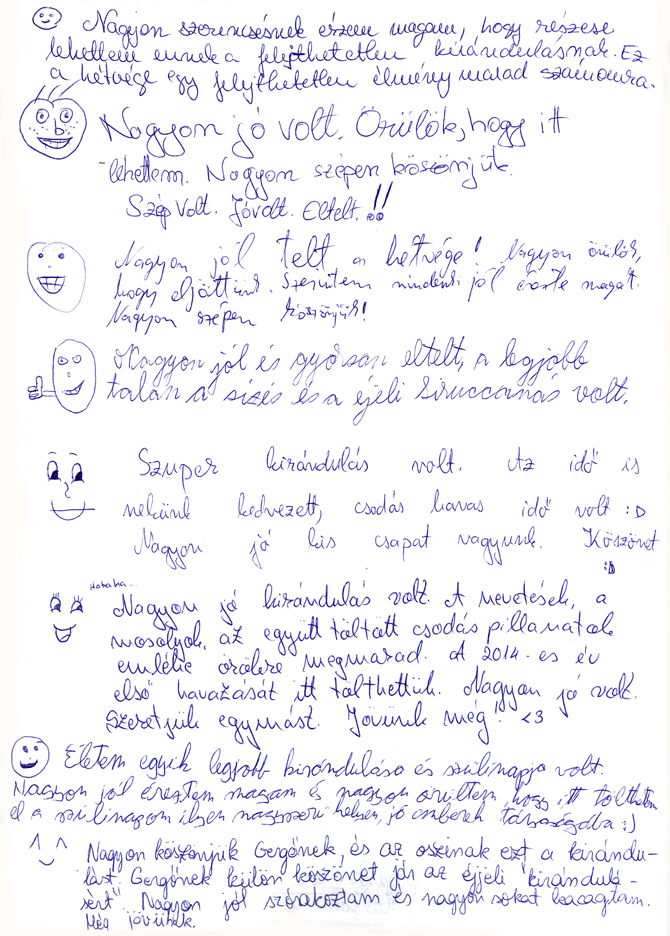 Nagyon szerencsésnek érzem magam, hogy részese
lehettem ennek a felejthetetlen kirándulásnak. Ez
a hétvége egy felejthetetlen élmény marad számomra.
Nagyon jó volt. Örülök, hogy itt
lehettem. Nagyon szépen köszönjük.
Szép volt. Jó volt. Eltelt.!!
Nagyon jól telt a hétvége! Nagyon örülök,
hogy eljöttünk. Szerintem mindenki jól érezte magát.
Nagyon szépen köszönjük!
Nagyon jól és gyorsan eltelt, a legjobb
talán a sízés és a éjeli kiruccanás volt.
Szuper kirándulás volt. Az idő is
nekünk kedvezett, csodás havas idő volt :D
Nagyon jó kis csapat vagyunk. Köszönet
:D
Hahaha...
Nagyon jó kirándulás volt. A nevetések, a
mosolyok, az együtt töltött csodás pillanatok
emléke örökre megmarad. A 2014-es év
első havazását itt tölthettük. Nagyon jó volt.
Szeretjük egymást. Jövünk még! <3
Életem egyik legjobb kirándulása és szülinapja volt.
Nagyon jól éreztem magam és nagyon örültem, hogy itt tölthettem
el a szülinapom ilyen nagyszerű helyen, jó emberek társaságába :)
Nagyon köszönjük Gergőnek, és az oszinak ezt a kirándu-
lást. Gergőnek külön köszönet jár az éjjeli "kirándulá-
sért". Nagyon jól szórakoztam és nagyon sokat kacagtam.
Még jövünk.